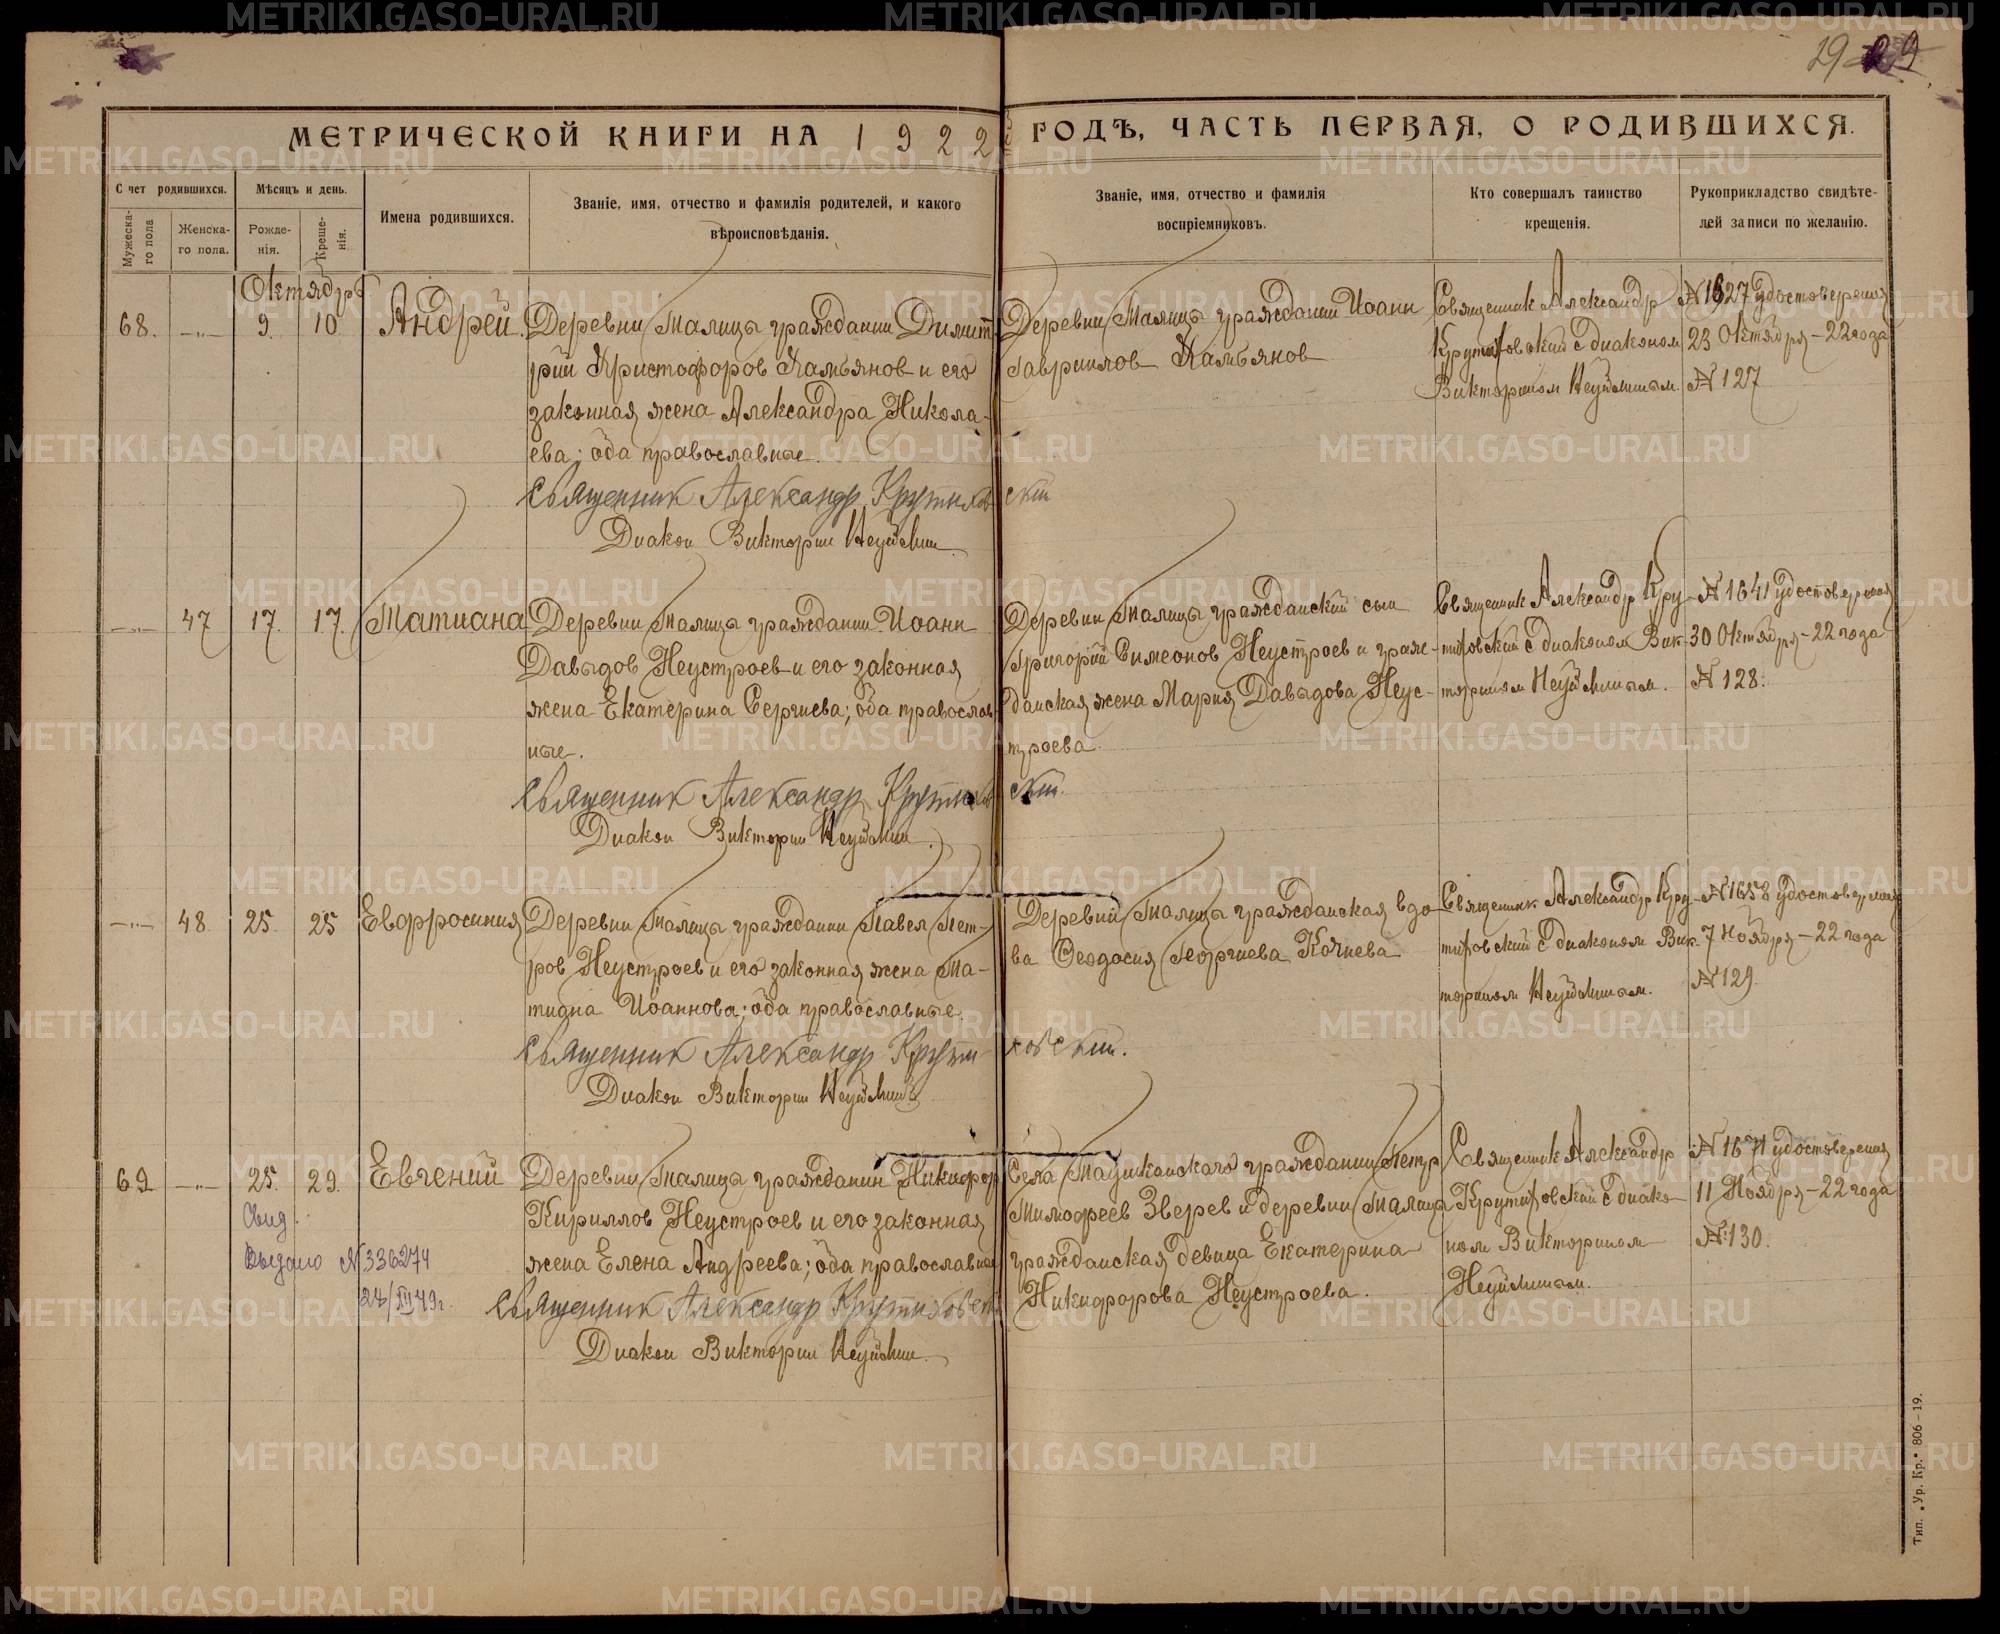 29
МЕТРИЧЕСКОЙ КНИГИ НА 1922 ГОДЪ, ЧАСТЬ ПЕРВАЯ, О РОДИВШИХСЯ.
Счет родившихся.
Мѣсяцъ и день.
Мужеска-
го пола
Женска-
го пола.
Рожде-
нія.
Креще-
нія.
Имена родившихся.
Званіе, имя, отчество и фамилія родителей, и какого
вѣроисповѣданія.
Званіе, имя, отчество и фамилія
воспріемниковъ.
Кто совершалъ таинство
крещенія.
Рукоприкладство свидѣте-
лей записи по желанію.
Октябрь
68. -"- 9. 10 Андрей.
Деревни Талицы гражданин Димит-
рий Христофоров Хамьянов и его
законная жена Александра Никола-
ева; оба православные.
Священник Александр Крутиховский
Диакон Викторин Неуймин.
Деревни Талицы гражданин Иоанн
Гавриилов Хамьянов
Священник Александр
Крутиховский с диаконом
Викторином Неуйминым.
№ 1627 удостоверения
23 Октября - 22 года
№ 127
-"- 47 17. 17. Татиана
Деревни Талицы гражданин Иоанн
Давыдов Неустроев и его законная
жена Екатерина Сергиева; оба православ-
ные.
Священник Александр Крутиховский.
Диакон Викторин Неуймин.
Деревни Талицы гражданский сын
Григорий Симеонов Неустроев и граж-
данская жена Мария Давыдова Неус-
троева.
Священник Александр Кру-
тиховский с диаконом Вик-
торином Неуйминым.
№ 1641 удостоверения
30 Октября - 22 года
№ 128.
-"- 48 25. 25 Евфросиния
Деревни Талицы гражданин Павел Пет-
ров Неустроев и его законная жена Та-
тиана Иоаннова; оба православные.
Священник Александр Крутиховский.
Диакон Викторин Неуймин
Деревни Талицы гражданская вдо-
ва Феодосия Георгиева Качнева
Священник Александр Кру-
тиховский с диаконом Вик-
торином Неуйминым.
№ 1658 удостоверения
7 Ноября - 22 года
№ 129.
69 -"- 25. 29. Евгений
Деревни Талицы гражданин Никифор
Кириллов Неустроев и его законная
жена Елена Андреева; оба православные
Священник Александр Крутиховский
Диакон Викторин Неуймин.
Села Машканского гражданин Петр
Тимофеев Зверев и деревни Талицы
гражданская девица Екатерина
Никифорова Неустроева.
Священник Александр
Крутиховский с диако-
ном Викторином
Неуйминым.
№ 1671 удостоверения
11 Ноября - 22 года
№ 130.
Свид.
выдано № 336274
24/XII 49г.
Тип. „Ур. Кр." 806-19.
METRIKI.GASO-URAL.RU